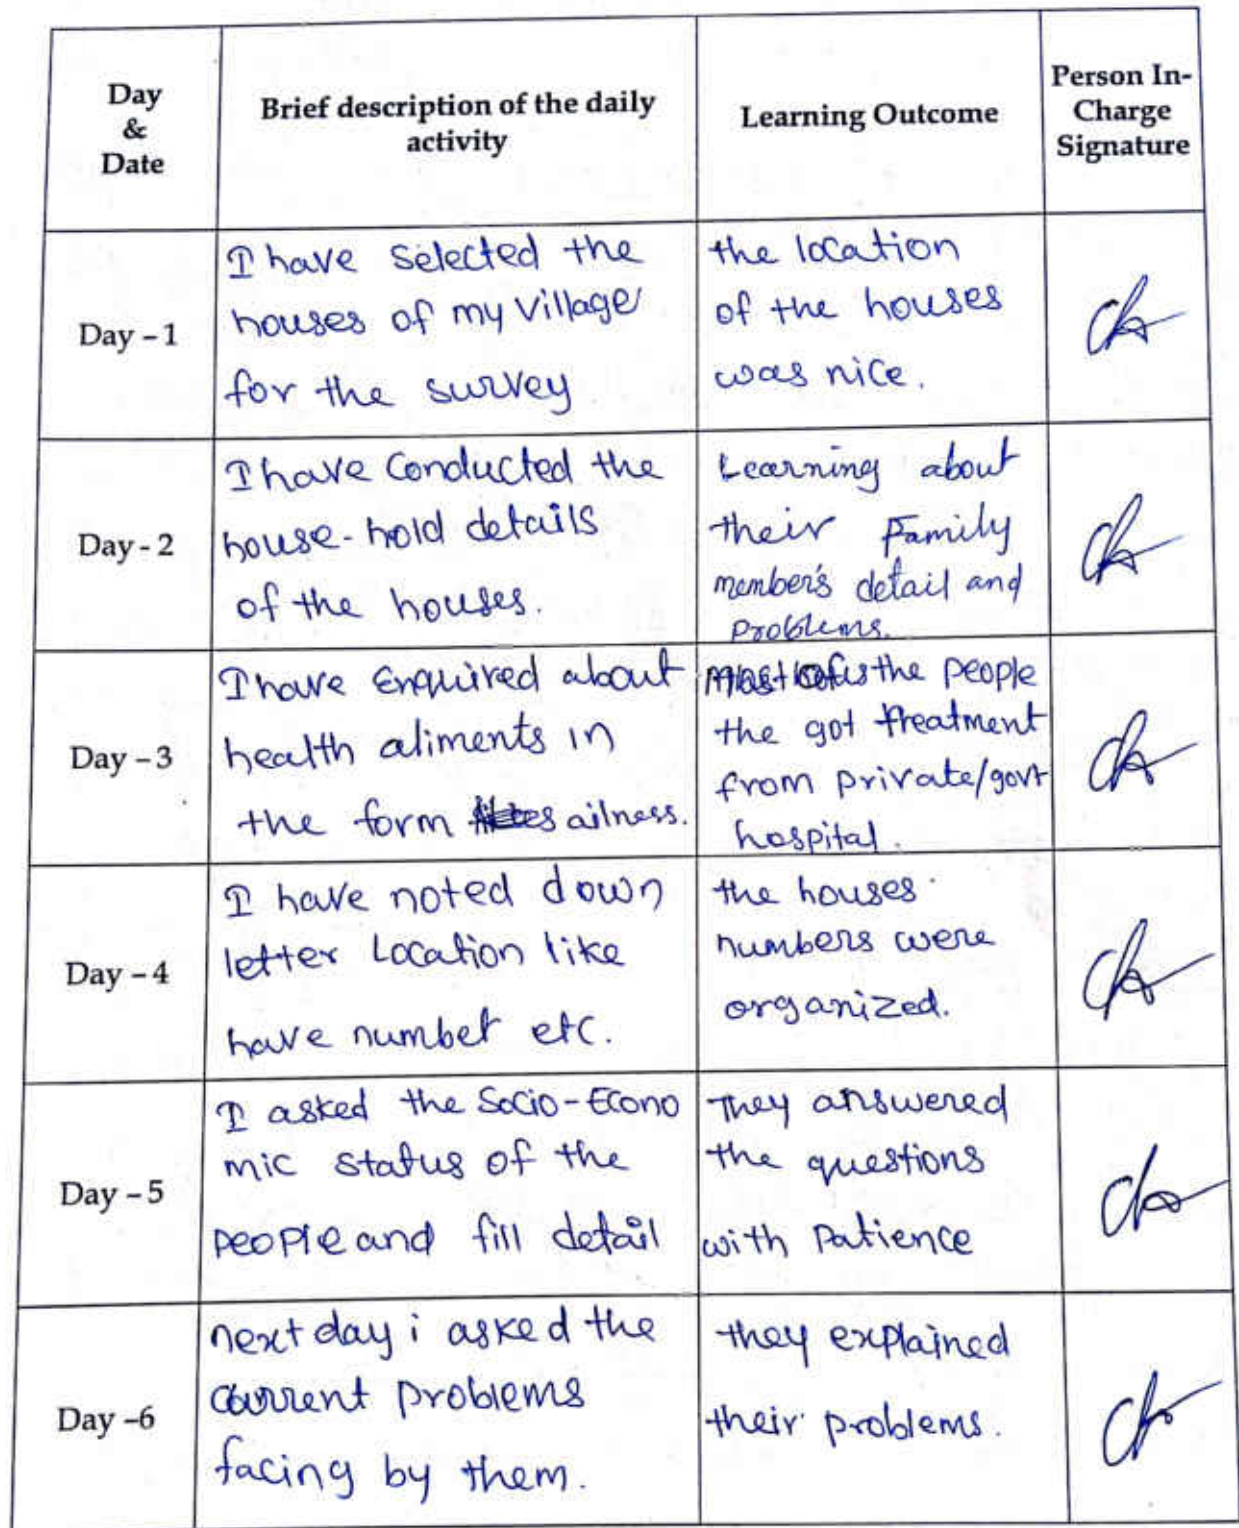 Day
&
Date
Brief description of the daily
activity
Learning Outcome
Person In-
Charge
Signature
Day – 1
I have selected the
houses of my village
for the survey
the location
of the houses
was nice.
Day - 2
I have Conducted the
house-hold details
of the houses.
Learning about
their Family
member's detail and
problems.
Day – 3
I have Enquired about
health aliments in
the form ailness.
the people
the got treatment
from private/govt
hospital.
Day – 4
I have noted down
letter Location like
have number etc.
the houses
numbers were
organized.
Day – 5
I asked the Socio-Econo
mic status of the
people and fill detail
They answered
the questions
with Patience
Day –6
next day i asked the
current problems
facing by them.
they explained
their problems.